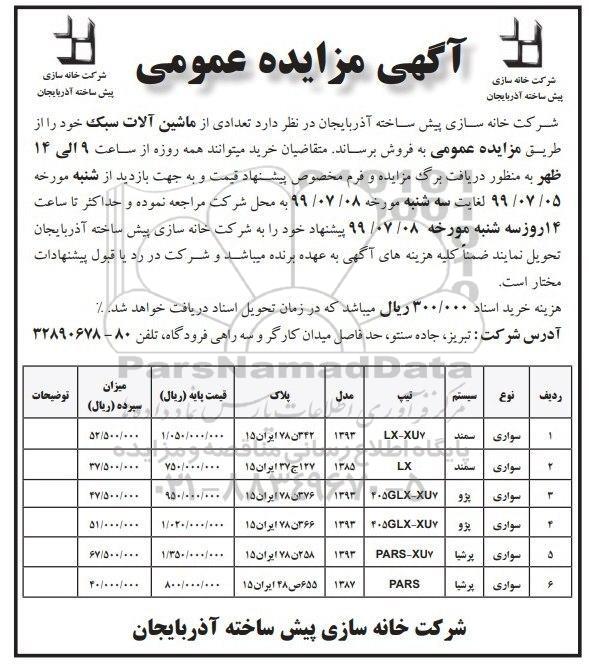 آگهی مزایده عمومی
شرکت خانه سازی
پیش ساخته آذربایجان
شرکت خانه سازی
پیش ساخته آذربایجان
شرکت خانه سازی پیش ساخته آذربایجان در نظر دارد تعدادی از ماشین آلات سبک خود را از
طریق مزایده عمومی به فروش برساند. متقاضیان خرید میتوانند همه روزه از ساعت ۹ الی ۱۴
ظهر به منظور دریافت برگ مزایده و فرم مخصوص پیشنهاد قیمت و به جهت بازدید از شنبه مورخه
۹۹/۰۷/۰۵ لغایت سه شنبه مورخه ۹۹/۰۷/۰۸ به محل شرکت مراجعه نموده و حداکثر تا ساعت
۱۴ روز سه شنبه مورخه ۹۹/۰۷/۰۸ پیشنهاد خود را به شرکت خانه سازی پیش ساخته آذربایجان
تحویل نمایند ضمناً کلیه هزینه های آگهی به عهده برنده میباشد و شرکت در رد یا قبول پیشنهادات
مختار است.
هزینه خرید اسناد ۳۰۰/۰۰۰ ریال میباشد که در زمان تحویل اسناد دریافت خواهد شد. ٪
آدرس شرکت: تبریز، جاده سنتو، حد فاصل میدان کارگر و سه راهی فرودگاه، تلفن ۸۰ - ۳۲۸۹۰۶۷۸
ParsNamadData
مرکز فرآوری اطلاعات پارس نماد داده ها
پایگاه اطلاع رسانی مناقصه و مزایده
۰۲۱-۸۸۳۴۹۶۷۰-۵
ردیف نوع سیستم تیپ مدل پلاک قیمت پایه (ریال) میزان سپرده (ریال) توضیحات
۱ سواری سمند LX-XU۷ ۱۳۹۳ ۳۴۲ن۷۸ ایران۱۵ ۱/۰۵۰/۰۰۰/۰۰۰ ۵۲/۵۰۰/۰۰۰
۲ سواری سمند LX ۱۳۸۵ ۱۲۷ج۳۷ ایران۱۵ ۷۵۰/۰۰۰/۰۰۰ ۳۷/۵۰۰/۰۰۰
۳ سواری پژو ۴۰۵GLX-XU۷ ۱۳۹۳ ۳۷۶ن۷۸ ایران۱۵ ۹۵۰/۰۰۰/۰۰۰ ۴۷/۵۰۰/۰۰۰
۴ سواری پژو ۴۰۵GLX-XU۷ ۱۳۹۳ ۳۶۶ن۷۸ ایران۱۵ ۱/۰۲۰/۰۰۰/۰۰۰ ۵۱/۰۰۰/۰۰۰
۵ سواری پرشیا PARS-XU۷ ۱۳۹۳ ۲۵۸ن۷۸ ایران۱۵ ۱/۳۵۰/۰۰۰/۰۰۰ ۶۷/۵۰۰/۰۰۰
۶ سواری پرشیا PARS ۱۳۸۷ ۶۵۵ص۴۸ ایران۱۵ ۸۰۰/۰۰۰/۰۰۰ ۴۰/۰۰۰/۰۰۰
شرکت خانه سازی پیش ساخته آذربایجان